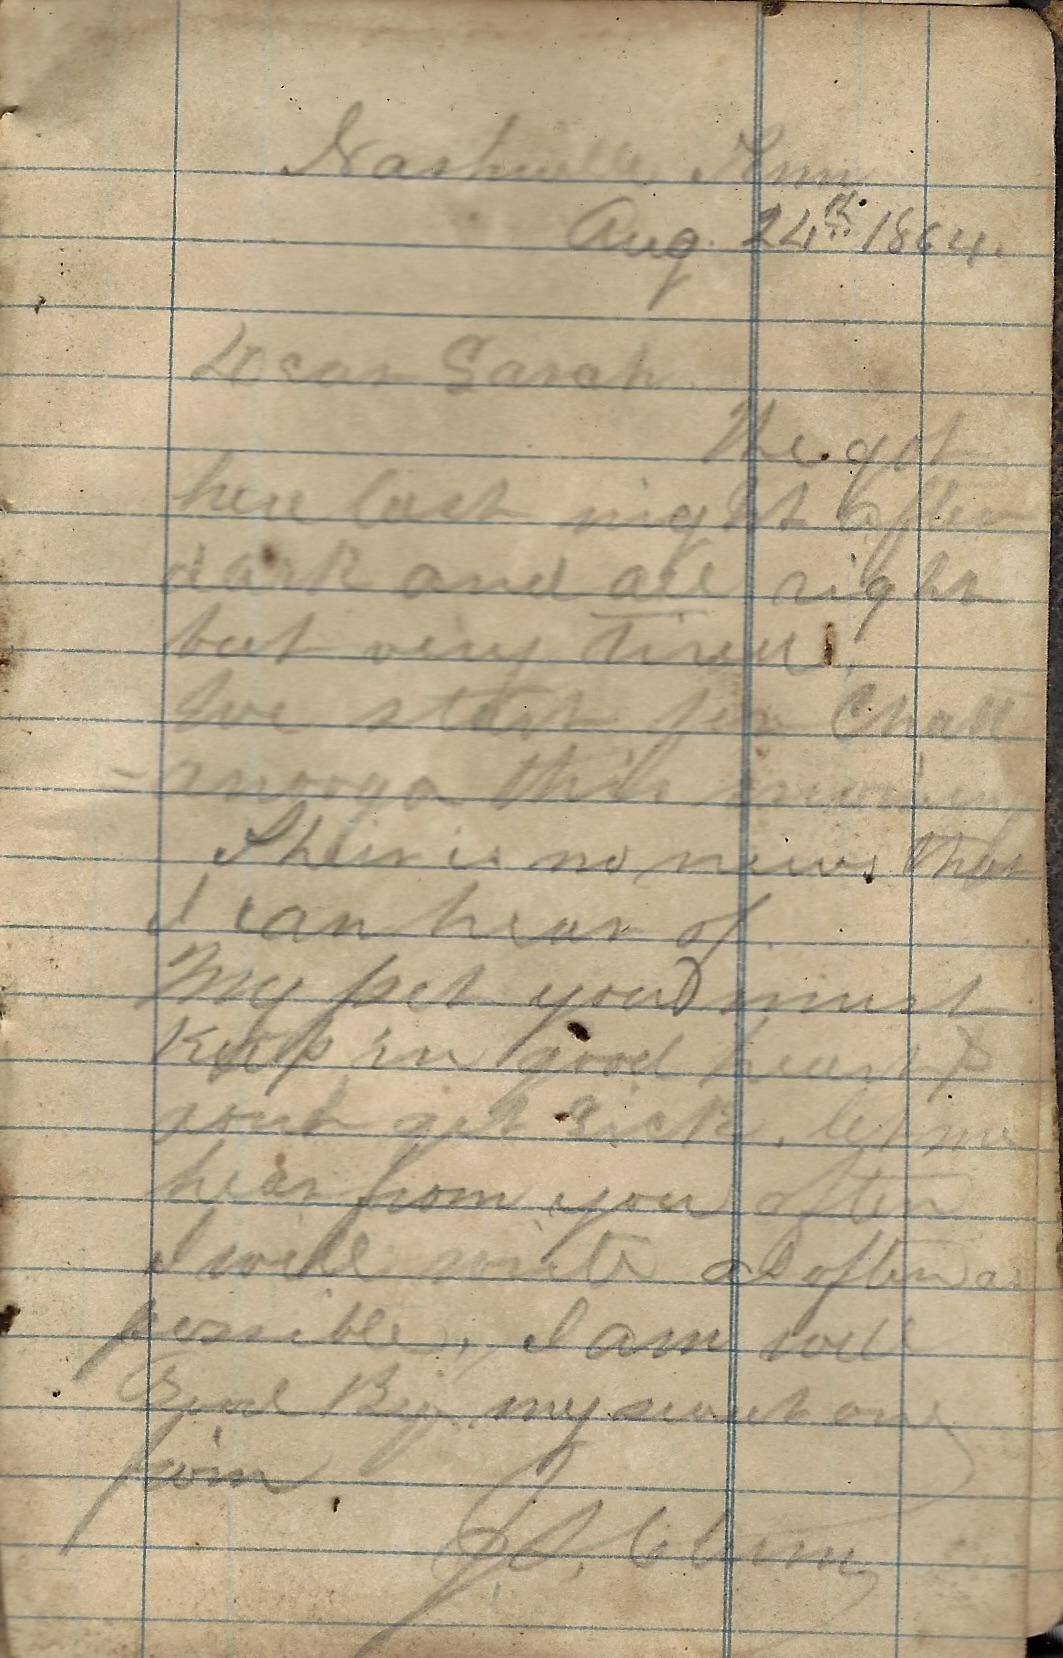 Nashville, Tenn
Aug. 24th 1864.
Dear Sarah.
We got
here last night after
dark and all right
but very tired.
We start for Chatt
-anooga this morning
Their is no news that
I can hear of.
My pet you must
Keep in good heart &
dont get sick. let me
hear from you often
I will write as often as
possible, I am well
Good By my sweet one
J.